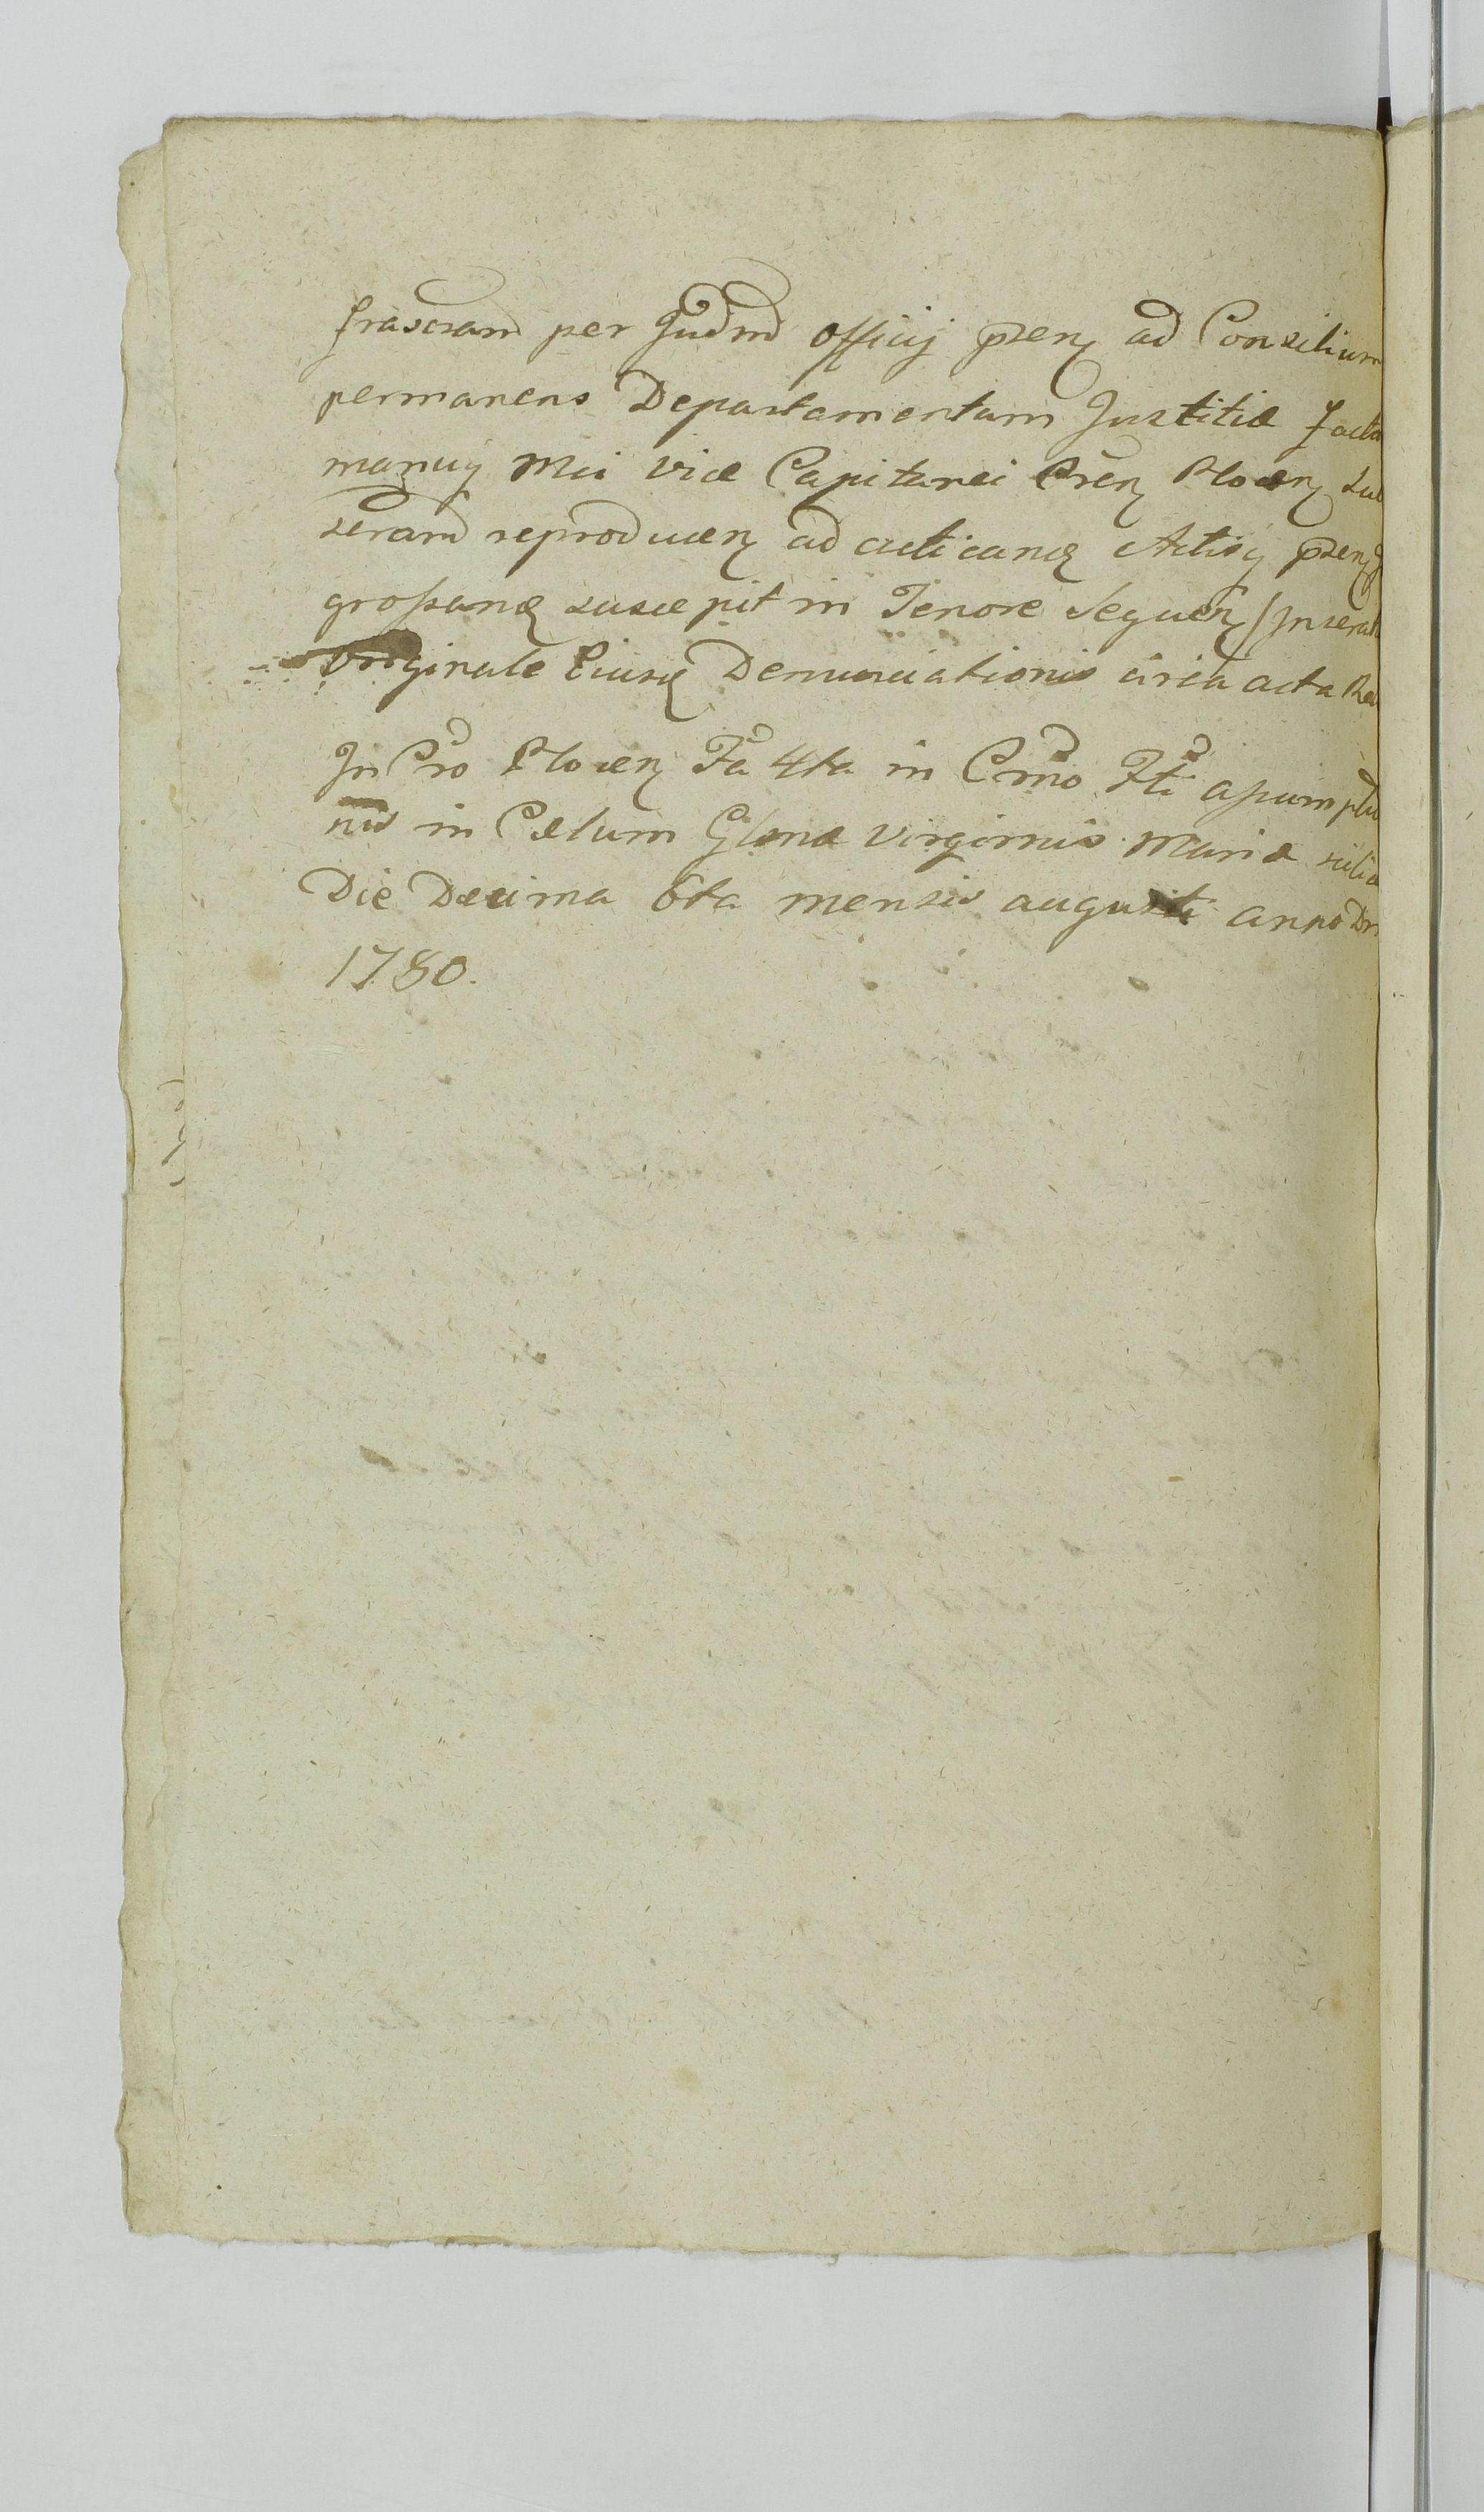 frascram per Gudnd Officij pšenʒ ad Consilium
permanens Departamentum Justitiæ facta
manuq Mei Vice Capitanei Crēnʒ Plocenʒ sub
scram reproducenʒ ad acticanđ Actisq pšenʒ
großanđ suscepit in Tenore Sequenʒ / Inserat
Originale Eiusđ Denunciationis circa acta Re
In Cro Plocenʒ Fa 4ta in Crmo Fti assumptio
nis in Cælum Glonæ Virginis Mariæ scilic
Die Decima 6ta mensis augusti anno Dn
1780.